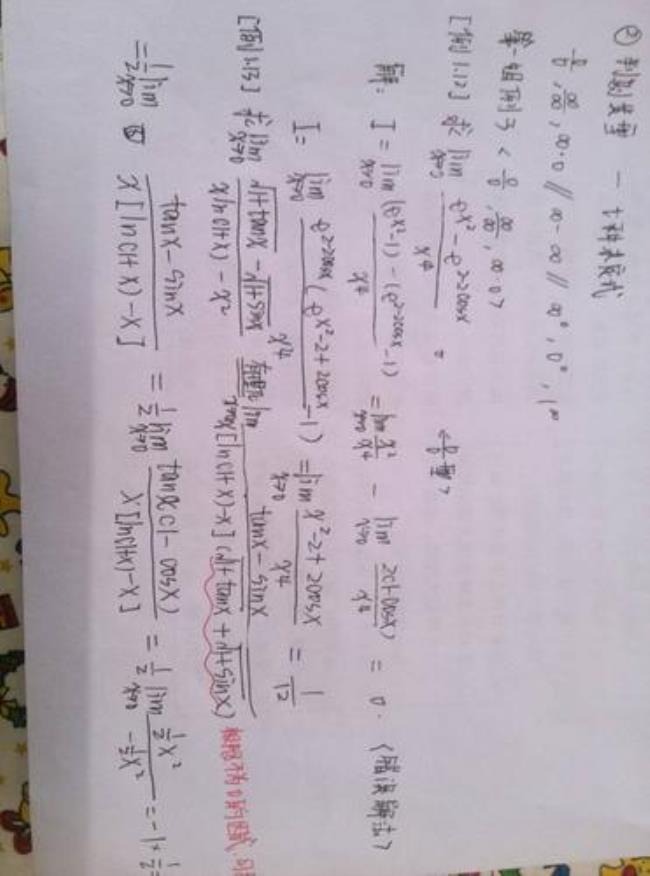 ② 判别类型 — 七种未定式
0/0, ∞/∞, ∞·0 // ∞-∞ // ∞⁰, 0⁰, 1^∞
第一组例子 < 0/0, ∞/∞, ∞·0 >
[例1.12] 求 lim x→0 (e^(x²) - e^(2-2cosx)) / x⁴ 。 <0/0型>
解: I = lim x→0 ((e^(x²)-1) - (e^(2-2cosx)-1)) / x⁴ = lim x→0 x²/x⁴ - lim x→0 2(1-cosx)/x⁴ = 0. <错误解法>
I = lim x→0 e^(2-2cosx)(e^(x²-2+2cosx)-1) / x⁴ = lim x→0 (x²-2+2cosx)/x⁴ = 1/12
[例1.13] 求 lim x→0 (√(1+tanx) - √(1+sinx)) / (xln(1+x) - x²) lim x→0 (tanx-sinx) / (x[ln(1+x)-x](√(1+tanx)+√(1+sinx)))
= 1/2 lim x→0 (tanx-sinx) / (x[ln(1+x)-x]) = 1/2 lim x→0 tanx(1-cosx) / (x[ln(1+x)-x]) = 1/2 lim x→0 (1/2 x²) / (-1/2 x²) = -1×1/2=